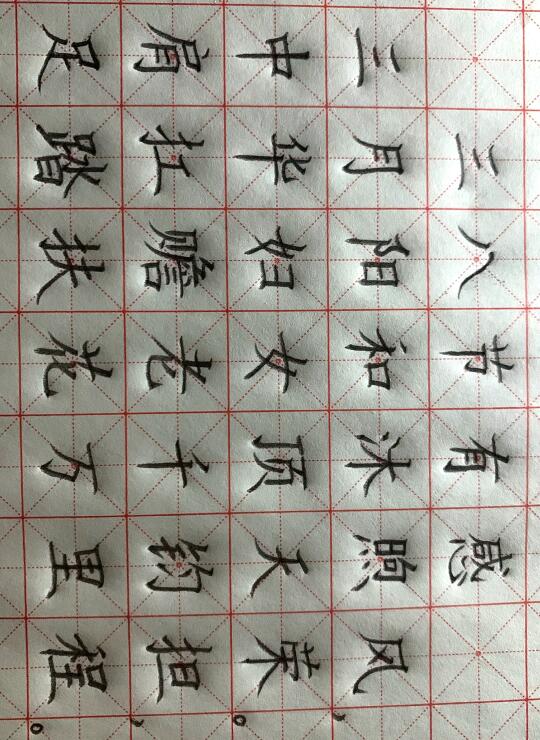 三八节有感
三月阳和沐煦风，
中华妇女顶天荣。
肩扛赡老千钧担，
足踏扶花万里程。